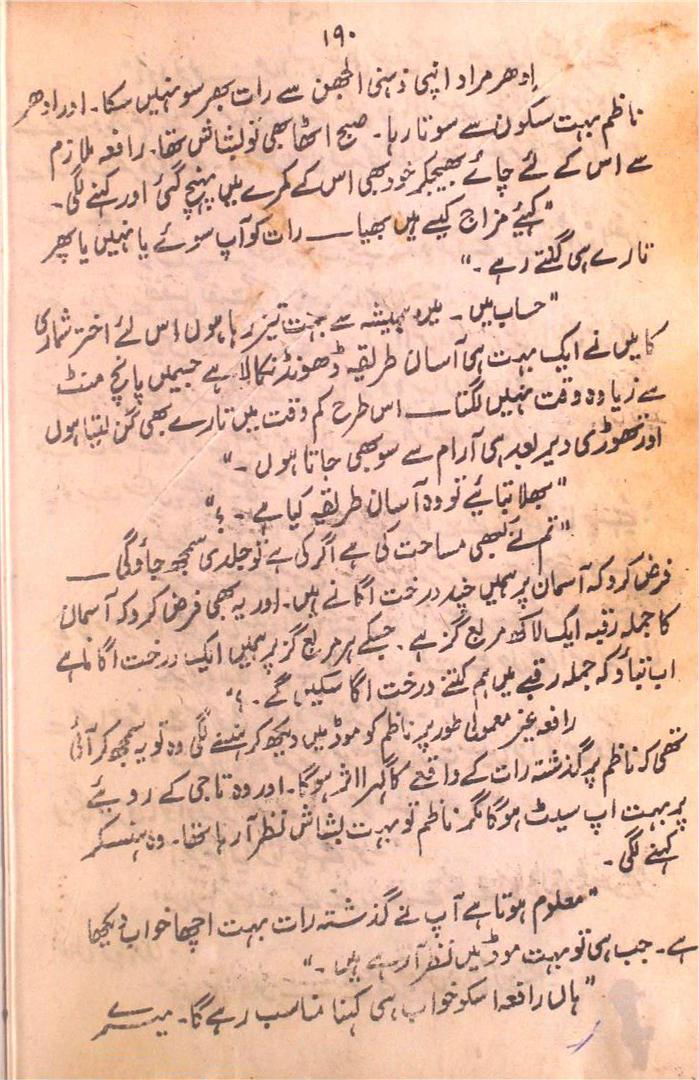 ۱۹۰
اِدھر مراد اپنی ذہنی الجھن سے رات بھر سو نہیں سکا۔ اور ادھر
ناظم بہت سکون سے سوتا رہا۔ صبح اٹھا بھی تو بشاش تھا۔ رافعہ ملازم
سے اس کے لئے چائے بھیجکر خود بھی اس کے کمرے میں پہنچ گئی اور کہنے لگی۔
"کہیئے مزاج کیسے ہیں بھیا ــــ رات کو آپ سوئے یا نہیں یا پھر
تارے ہی گنتے رہے۔"
"حساب میں۔ میں ہمیشہ سے بہت تیز رہا ہوں اِس لئے اختر شماری
کا میں نے ایک بہت ہی آسان طریقہ ڈھونڈ نکالا ہے جسمیں پانچ منٹ
سے زیادہ وقت نہیں لگتا ــــ اس طرح کم وقت میں تارے بھی گن لیتا ہوں
اور تھوڑی دیر بعد ہی آرام سے سو بھی جاتا ہوں۔"
"بھلا بتائیے تو وہ آسان طریقہ کیا ہے۔ ؟"
"تم نے کبھی مساحت کی ہے اگر کی ہے تو جلدی سمجھ جاؤ گی ــــ
فرض کرو کہ آسمان پر ہمیں چند درخت اگانے ہیں۔ اور یہ بھی فرض کرو کہ آسمان
کا جملہ رقبہ ایک لاکھ مربع گز ہے۔ جسکے ہر مربع گز پر ہمیں ایک درخت اگانا ہے
اب بتاؤ کہ جملہ رقبے میں ہم کتنے درخت اگا سکیں گے۔ ؟"
رافعہ غیر معمولی طور پر ناظم کو موڈ میں دیکھ کر ہنسنے لگی وہ تو یہ سمجھ کر آئی
تھی کہ ناظم پر گذشتہ رات کے واقعے کا گہرا اثر ہوگا۔ اور وہ تاجی کے رویئے
پر بہت اپ سیٹ ہوگا مگر ناظم تو بہت بشاش نظر آ رہا تھا۔ وہ ہنسکر
کہنے لگی۔
"معلوم ہوتا ہے آپ نے گذشتہ رات بہت اچھا خواب دیکھا
ہے۔ جب ہی تو بہت موڈ میں نظر آ رہے ہیں۔"
"ہاں رافعہ اسکو خواب ہی کہنا مناسب رہے گا۔ میرے